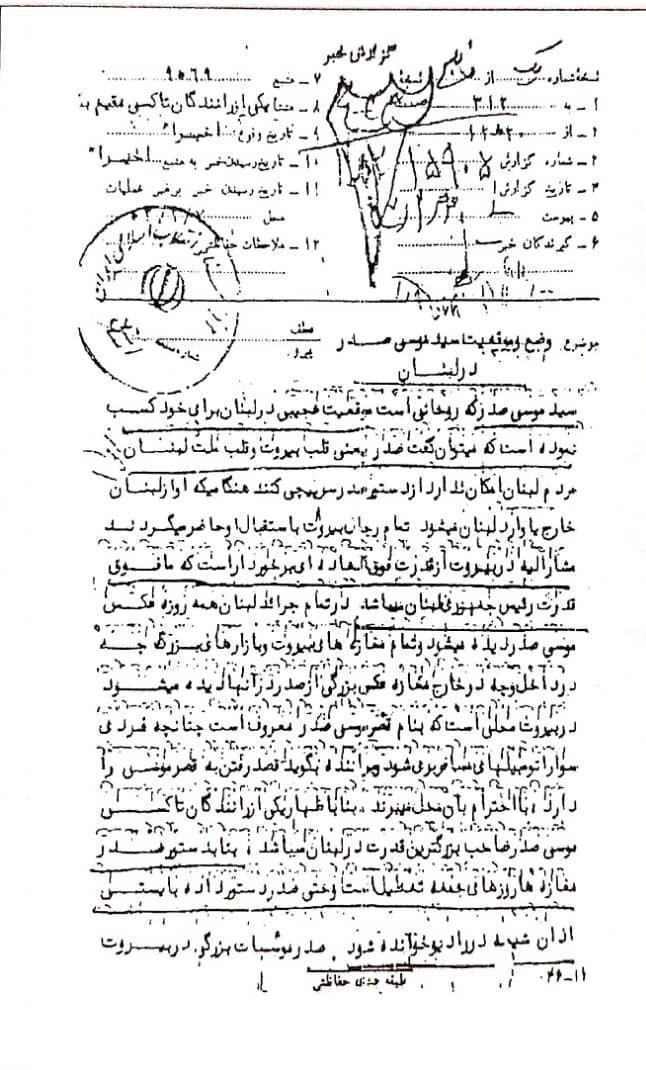 گزارش خبر
نسخه شماره یک از نسخه
۷ ـ منبع ۹۵۶۹
۱ ـ به ۳۱۲
۸ ـ منشا یکی از رانندگان تاکسی مقیم
۲ ـ از
۹ ـ تاریخ وقوع اخیرا"
۳ ـ شماره گزارش
۱۰ ـ تاریخ رسیدن خبر به منبع اخیرا"
۴ ـ تاریخ گزارش
۱۱ ـ تاریخ رسیدن خبر برهبر عملیات
۵ ـ پیوست
محل
۶ ـ گیرندگان خبر
۱۲ ـ ملاحظات حفاظتی
موضوع وضع و موقعیت سید موسی صدر
در لبنان
عطف
پیرو
سید موسی صدر که روحانی است موقعیت عجیبی در لبنان برای خود کسب
نموده است که میتوان گفت صدر یعنی قلب بیروت و قلب ملت لبنان
مردم لبنان امکان ندارد از دستور صدر سرپیچی کنند هنگامیکه او از لبنان
خارج یا وارد لبنان میشود تمام رجال بیروت باستقبال او حاضر میگردند
مشارالیه در بیروت از قدرت فوق العاده ای برخوردار است که مافوق
قدرت رئیس جمهوری لبنان میباشد در تمام جرائد لبنان همه روزه عکس
موسی صدر دیده میشود و تمام مغازه های بیروت و بازارهای بزرگ چه
در داخل وچه در خارج مغازه عکس بزرگی از صدر در آنها دیده میشود
در بیروت محلی است که بنام قصر موسی صدر معروف است چنانچه فردی
سوار اتومبیلهای مسافربری شود و براننده بگوید قصد رفتن به قصر موسی را
دارد، با احترام بآن محل میبرند، بنا باظهار یکی از رانندگان تاکسی
موسی صدر صاحب بزرگترین قدرت در لبنان میباشد، بنا بدستور صدر
مغازه ها روزهای جمعه تعطیل است و حتی صدر دستور داده بایستی
اذان شیعه در رادیو خوانده شود. صدر موسسات بزرگی در بیروت
طبقه بندی حفاظتی
۱۱ـ۴۶